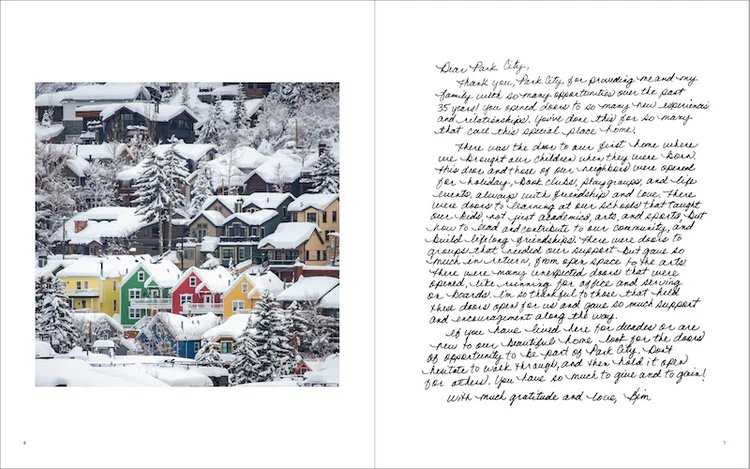 Dear Park City,
Thank you, Park City, for providing me and my
family with so many opportunities over the past
35 years! You opened doors to so many new experiences
and relationships. You've done this for so many
that call this special place home.
There was the door to our first home where
we brought our children when they were born.
This door and those of our neighbors were opened
for holiday, book clubs, playgroups, and life
events, always with friendship and love. There
were doors to learning at our schools that taught
our kids not just academics, arts, and sports, but
how to lead and contribute to our community, and
build lifelong friendships. There were doors to
groups that needed our support but gave so
much in return, from open space to the arts.
There were many unexpected doors that were
opened, like running for office and serving
on boards. I'm so thankful to those that held
these doors open for us and gave so much support
and encouragement along the way.
If you have lived here for decades or are
new to our beautiful home look for the doors
of opportunity to be part of Park City. Don't
hesitate to walk through, and then hold it open
for others. You have so much to give and to gain!
With much gratitude and love, Kim
6
7